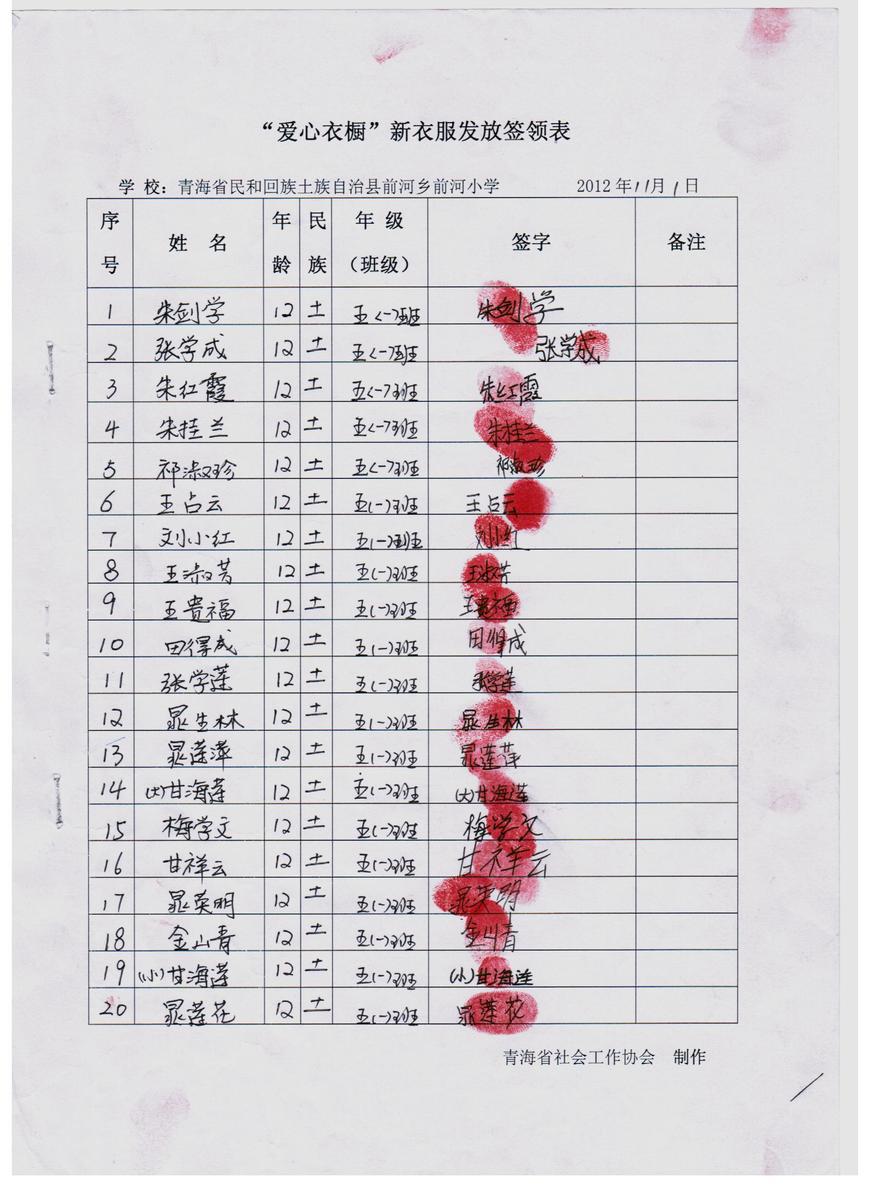 “爱心衣橱”新衣服发放签领表
学 校：青海省民和回族土族自治县前河乡前河小学 2012 年 11 月 1 日
序号 姓 名 年龄 民族 年 级（班级） 签字 备注
1 朱剑学 12 土 五(一)班 朱剑学
2 张学成 12 土 五(一)班 张学成
3 朱红霞 12 土 五(一)班 朱红霞
4 朱桂兰 12 土 五(一)班 朱桂兰
5 祁淑珍 12 土 五(一)班 祁淑珍
6 王占云 12 土 五(一)班 王占云
7 刘小红 12 土 五(一)班 刘小红
8 王淑芳 12 土 五(一)班 王淑芳
9 王贵福 12 土 五(一)班 王贵福
10 田得成 12 土 五(一)班 田得成
11 张学莲 12 土 五(一)班 张学莲
12 晁生林 12 土 五(一)班 晁生林
13 晁莲萍 12 土 五(一)班 晁莲萍
14 (大)甘海莲 12 土 五(一)班 (大)甘海莲
15 梅学文 12 土 五(一)班 梅学文
16 甘祥云 12 土 五(一)班 甘祥云
17 晁英明 12 土 五(一)班 晁英明
18 金山青 12 土 五(一)班 金山青
19 (小)甘海莲 12 土 五(一)班 (小)甘海莲
20 晁莲花 12 土 五(一)班 晁莲花
青海省社会工作协会 制作